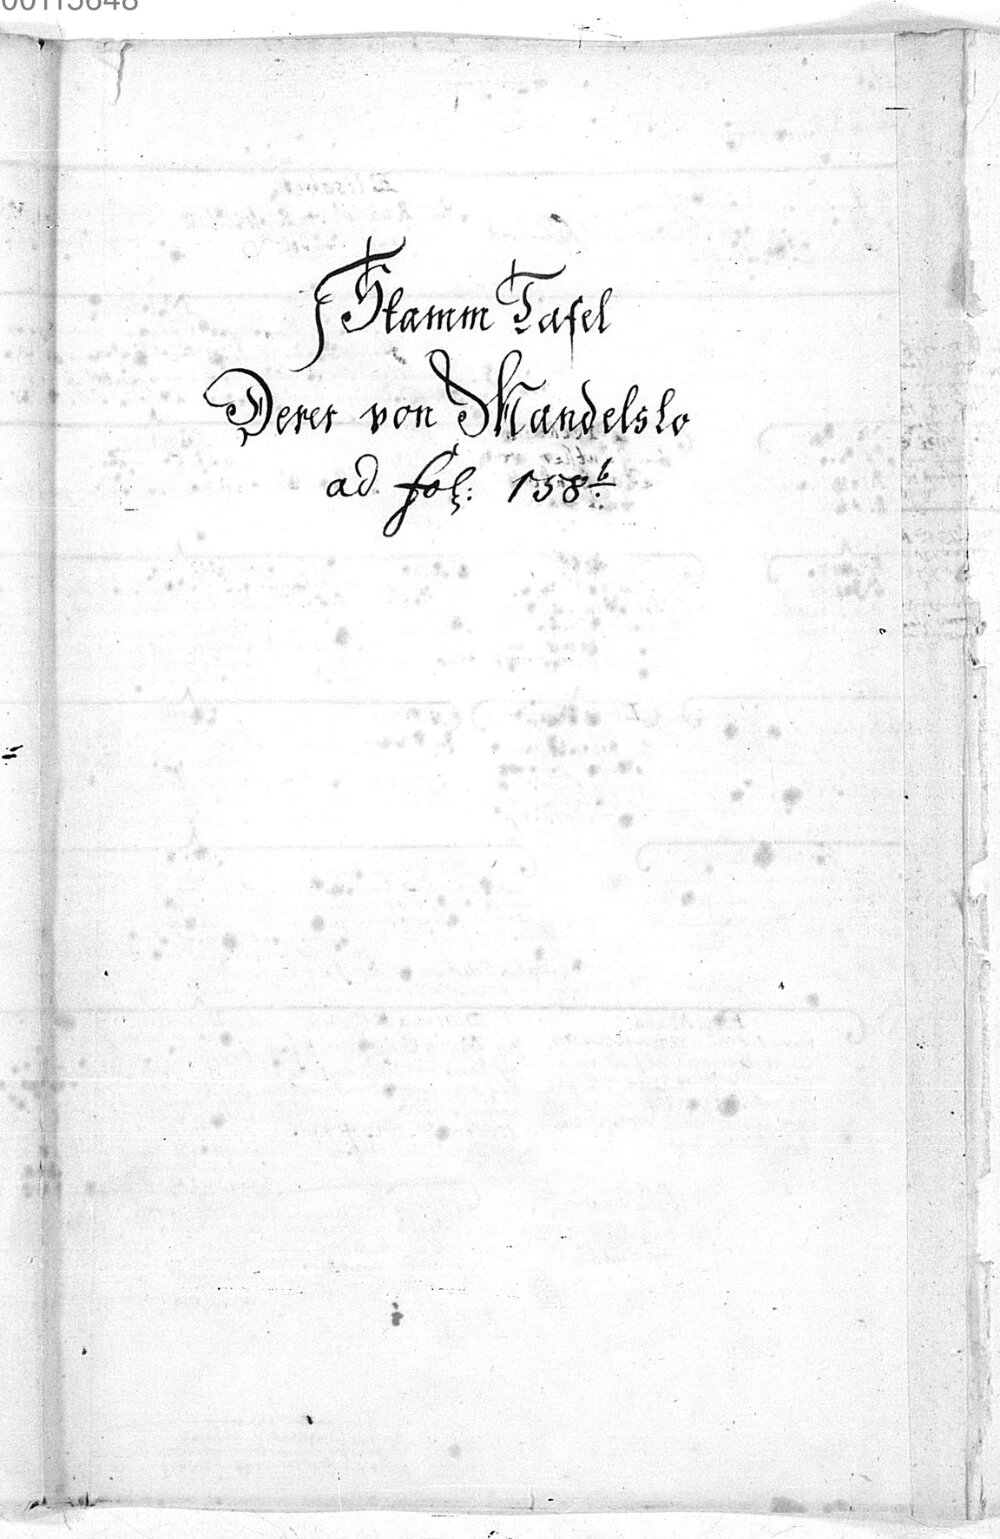 00115648
Stamm Tafel
Derer von Mandelslo
ad fol: 158b.